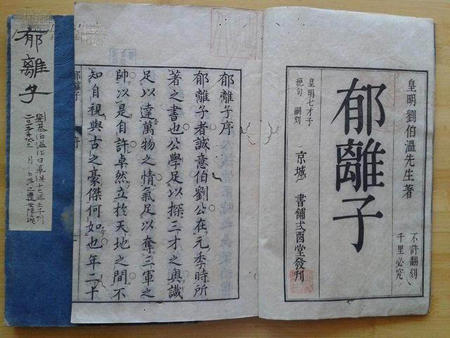 皇明劉伯溫先生著
郁離子
不許翻刻
千里必究
皇明七才子
絕句 嗣刻
京城 書鋪弍酉堂發刊
郁離子序
郁離子者誠意伯劉公在元季時所
著之書也公學足以探三才之奧識
足以達萬物之情氣足以奪三軍之
帥以是自許卓然立於天地之間不
知自視與古之豪傑何如也年二十
郁離子